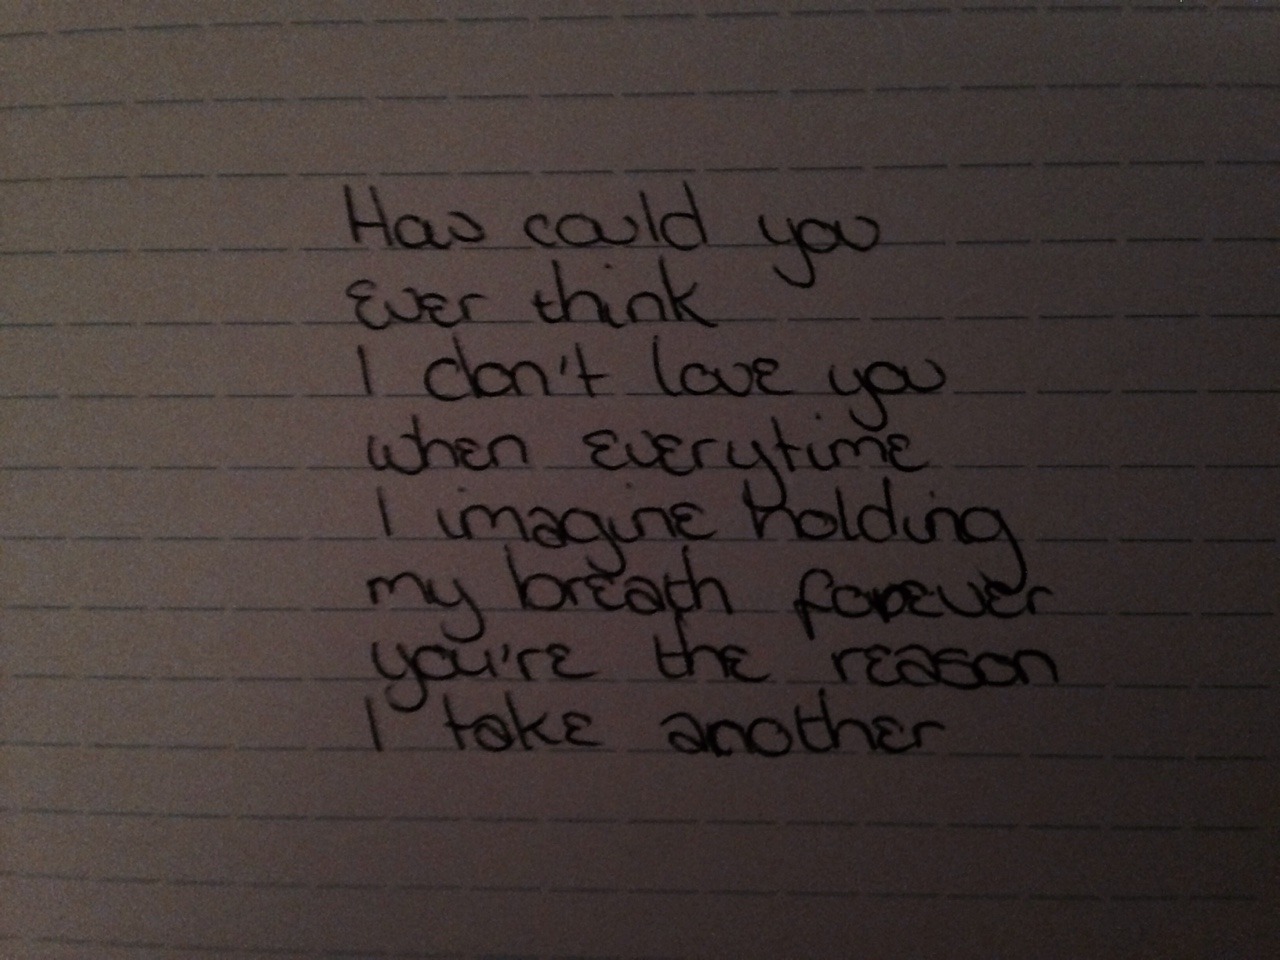 How could you
Ever think
I don't love you
when everytime
I imagine holding
my breath forever
you're the reason
I take another